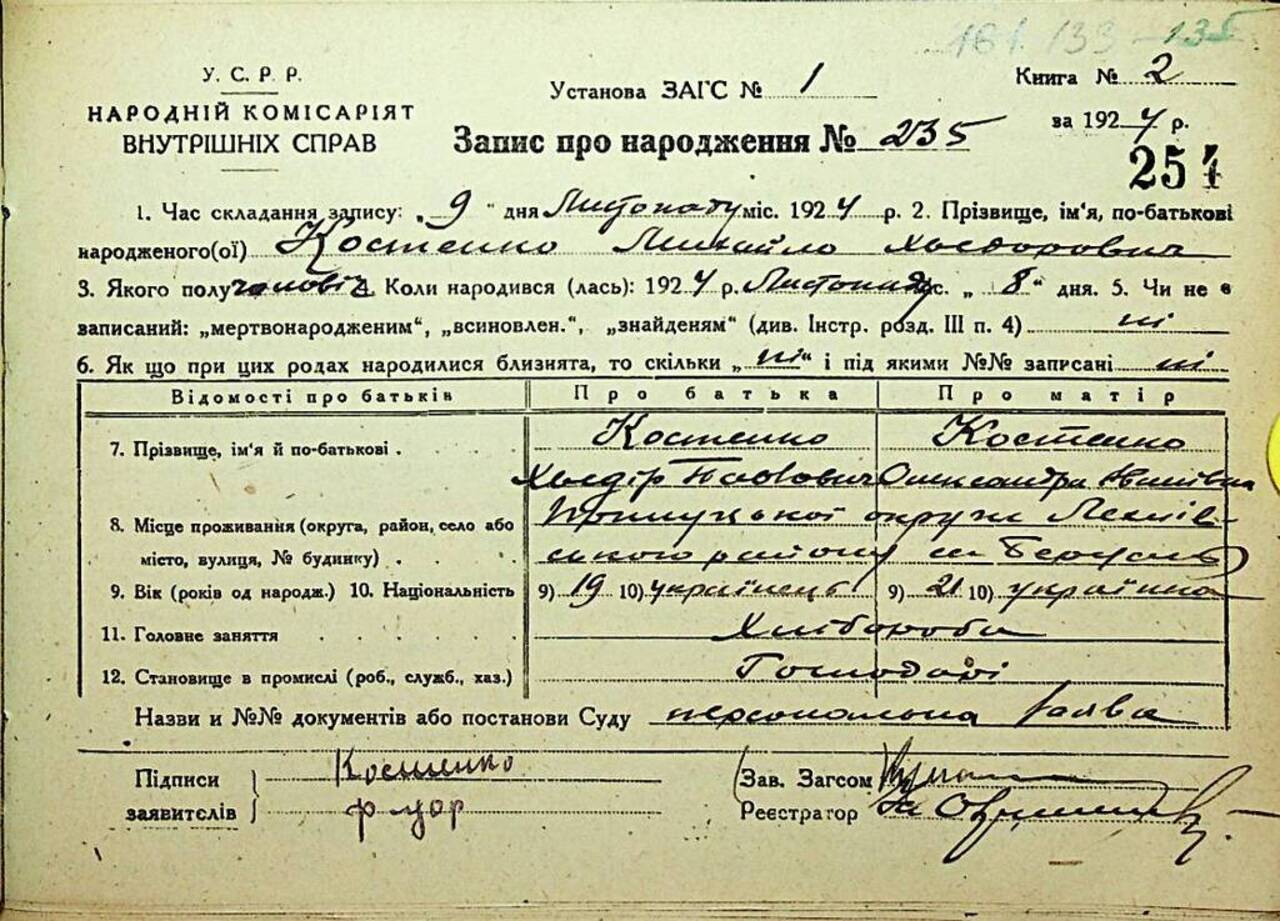 161. 133 - 135
У. С. Р. Р.
НАРОДНІЙ КОМІСАРІЯТ
ВНУТРІШНІХ СПРАВ
Установа ЗАГС № 1
Запис про народження № 235
Книга № 2
за 1924 р.
254
1. Час складання запису: „ 9 " дня Листопаду міс. 1924 р. 2. Прізвище, ім'я, по-батькові
народженого(ої) Костенко Михайло Хведорович
3. Якого полу чоловіч. Коли народився (лась): 1924 р. Листопаду міс. „ 8 " дня. 5. Чи не є
записаний: „мертвонародженим", „всиновлен.", „знайденям" (див. Інстр. розд. III п. 4) ні
6. Як що при цих родах народилися близнята, то скільки „ ні " і під якими №№ записані ні
Відомості про батьків Про батька Про матір
7. Прізвище, ім'я й по-батькові . Костенко Костенко
Хведір Павлович Олександра
8. Місце проживання (округа, район, село або Прилуцької округи
місто, вулиця, № будинку) . . ського району
9. Вік (років од народж.) 10. Національність 9) 19 10) українець 9) 21 10) українка
11. Головне заняття . . . . . . Хлібороби
12. Становище в промислі (роб., служб., хаз.) Господарі
Назви и №№ документів або постанови Суду персональна заява
Підписи Костенко
заявителів
Зав. Загсом
Реєстратор